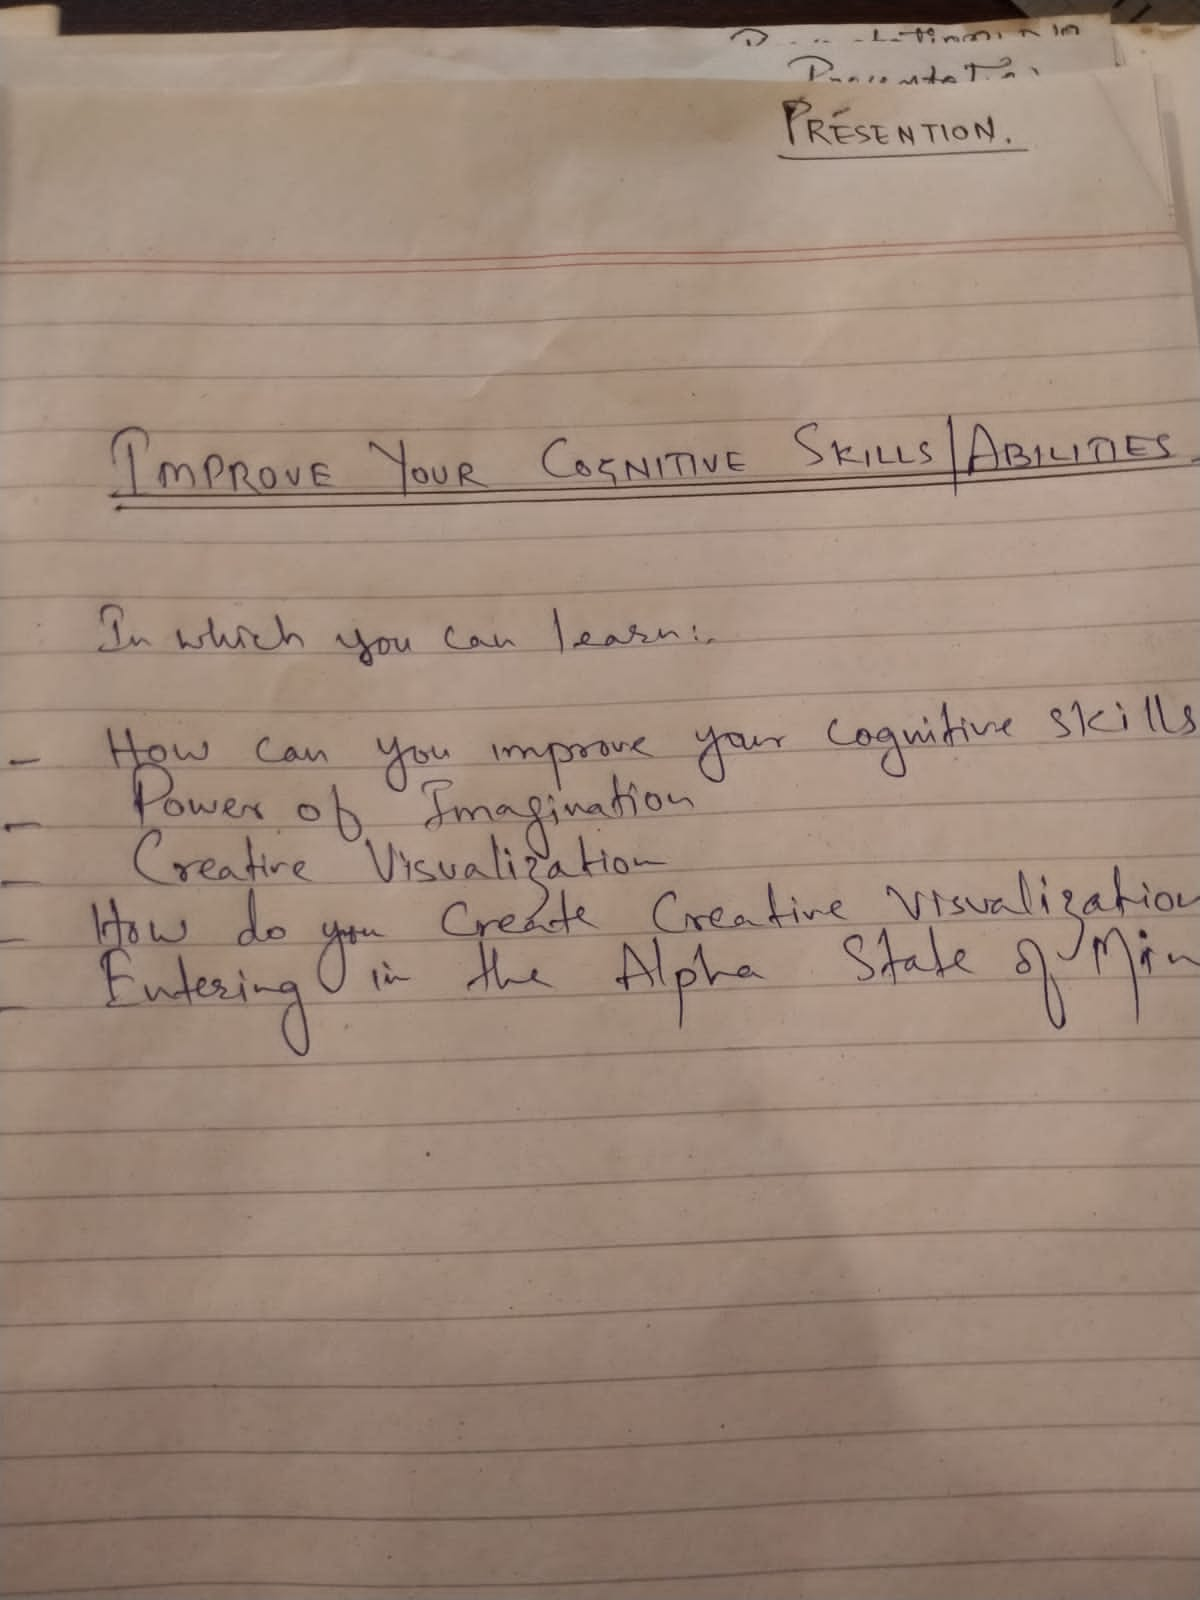 PRESENTION.
IMPROVE YOUR COGNITIVE SKILLS/ABILITIES.
In which you can learn:-
- How can you improve your cognitive skills
- Power of Imagination
- Creative Visualization
- How do you Create Creative Visualization
- Entering in the Alpha State of Min